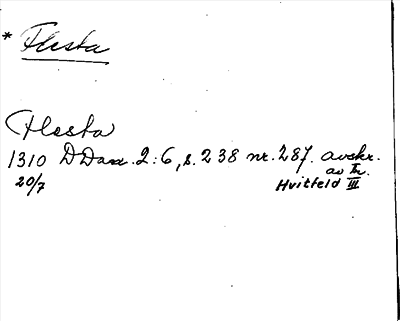 * Flesta
Flesta
1310 DDan. 2:6, s. 238 nr. 287. avskr.
20/7
av tr.
Hvitfeld III